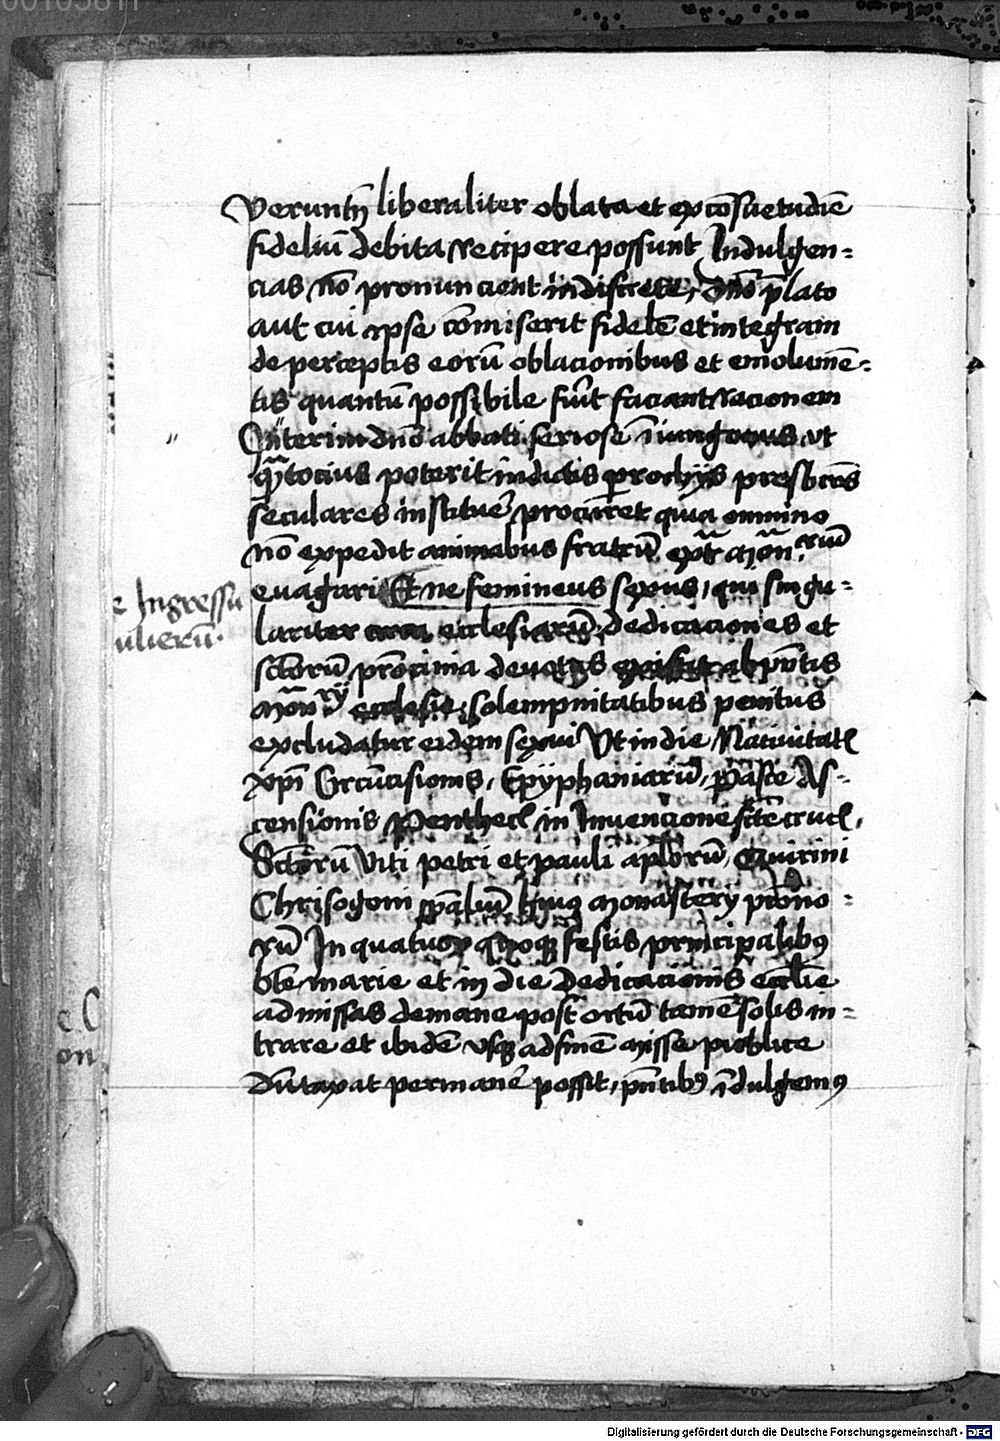 Veruntn̄ liberaliter oblata et ex cōsuetudīe
fideliū debita recipere possunt Indulgen=
cias nō pronuncient indiscrete, Dn̄o p̄lato
aut cui ipse cōmiserit fidelē et integram
de perceptis eorū oblacionibus et emolumē=
tis quantū possibile fuīt faciant racionem
Interim dn̄o abbati seriose īiungentes, ut
q̄ntocius poterit in dictis parochijs presbr̄os
seculares instituē procuret quia omnino
nō expedit animabus fratrū ext̄ mōn̄.riū
evagari Et ne femineus sexus, qui singu=
lariter circa ecclesiarū dedicaciones et
sctōrū prōcinia devotus existit ab p̄ntis
mōn̄.rij ecclesie solempnitatibus penitus
excludatur eidem sexui Ut in die Nativitatꝭ
xp̄i Circūcisionis, Epÿphaniarū, pasce As=
censionis Penthecꝭ in Invencione scte crucꝭ,
Sctōrū Viti petri et pauli aplōrū, Quirini
Chrisogoni sp̄aliū huiꝯ monastery prōno=
rū In quatuor quoqꝫ festis principalibꝯ
bte marie et in die Dedicacionis ecclie
ad missas de mane post ortū tamē solis in=
trare et ibidē usqꝫ ad finē misse publice
Dūtaxat permanē possit, pn̄tibꝯ īdulgemꝯ
e Ingressu
ulierū.
e C
on
00105811
Digitalisierung gefördert durch die Deutsche Forschungsgemeinschaft - DFG